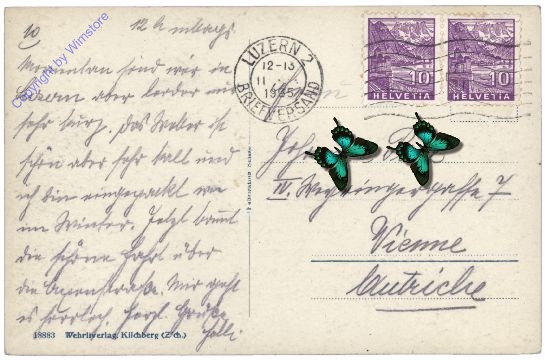 10
12 h mittags
Momentan sind wir in
aber leider nur
sehr kurz. Das Wetter ist
schön aber sehr kalt und
ich bin eingepackt wie
im Winter. Jetzt kommt
die schöne Fahrt über
die Axenstraße. Mir geht
es herrlich. Herzl. Grüße
18883 Wehrliverlag, Kilchberg (Zch.)
Copyright by Wimstore
LUZERN 2
12-13
11
1935
BRIEFVERSAND
10 10
HELVETIA HELVETIA
IV. 7
Vienne
Autriche